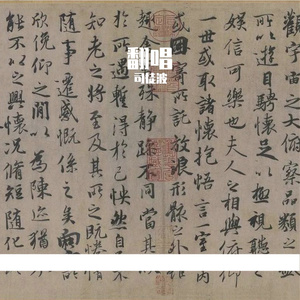 翻唱
司徒波
觀宇宙之大俯察品類之盛
所以遊目騁懷足以極視聽之
娛信可樂也夫人之相與俯仰
一世或取諸懷抱悟言一室之內
或因寄所託放浪形骸之外雖
殊靜躁不同當其欣
於所遇暫得於己怏然自足
知老之將至及其所之既惓情
隨事遷感慨係之矣向之
欣俛仰之間以為陳迹猶不
能不以之興懷況脩短隨化